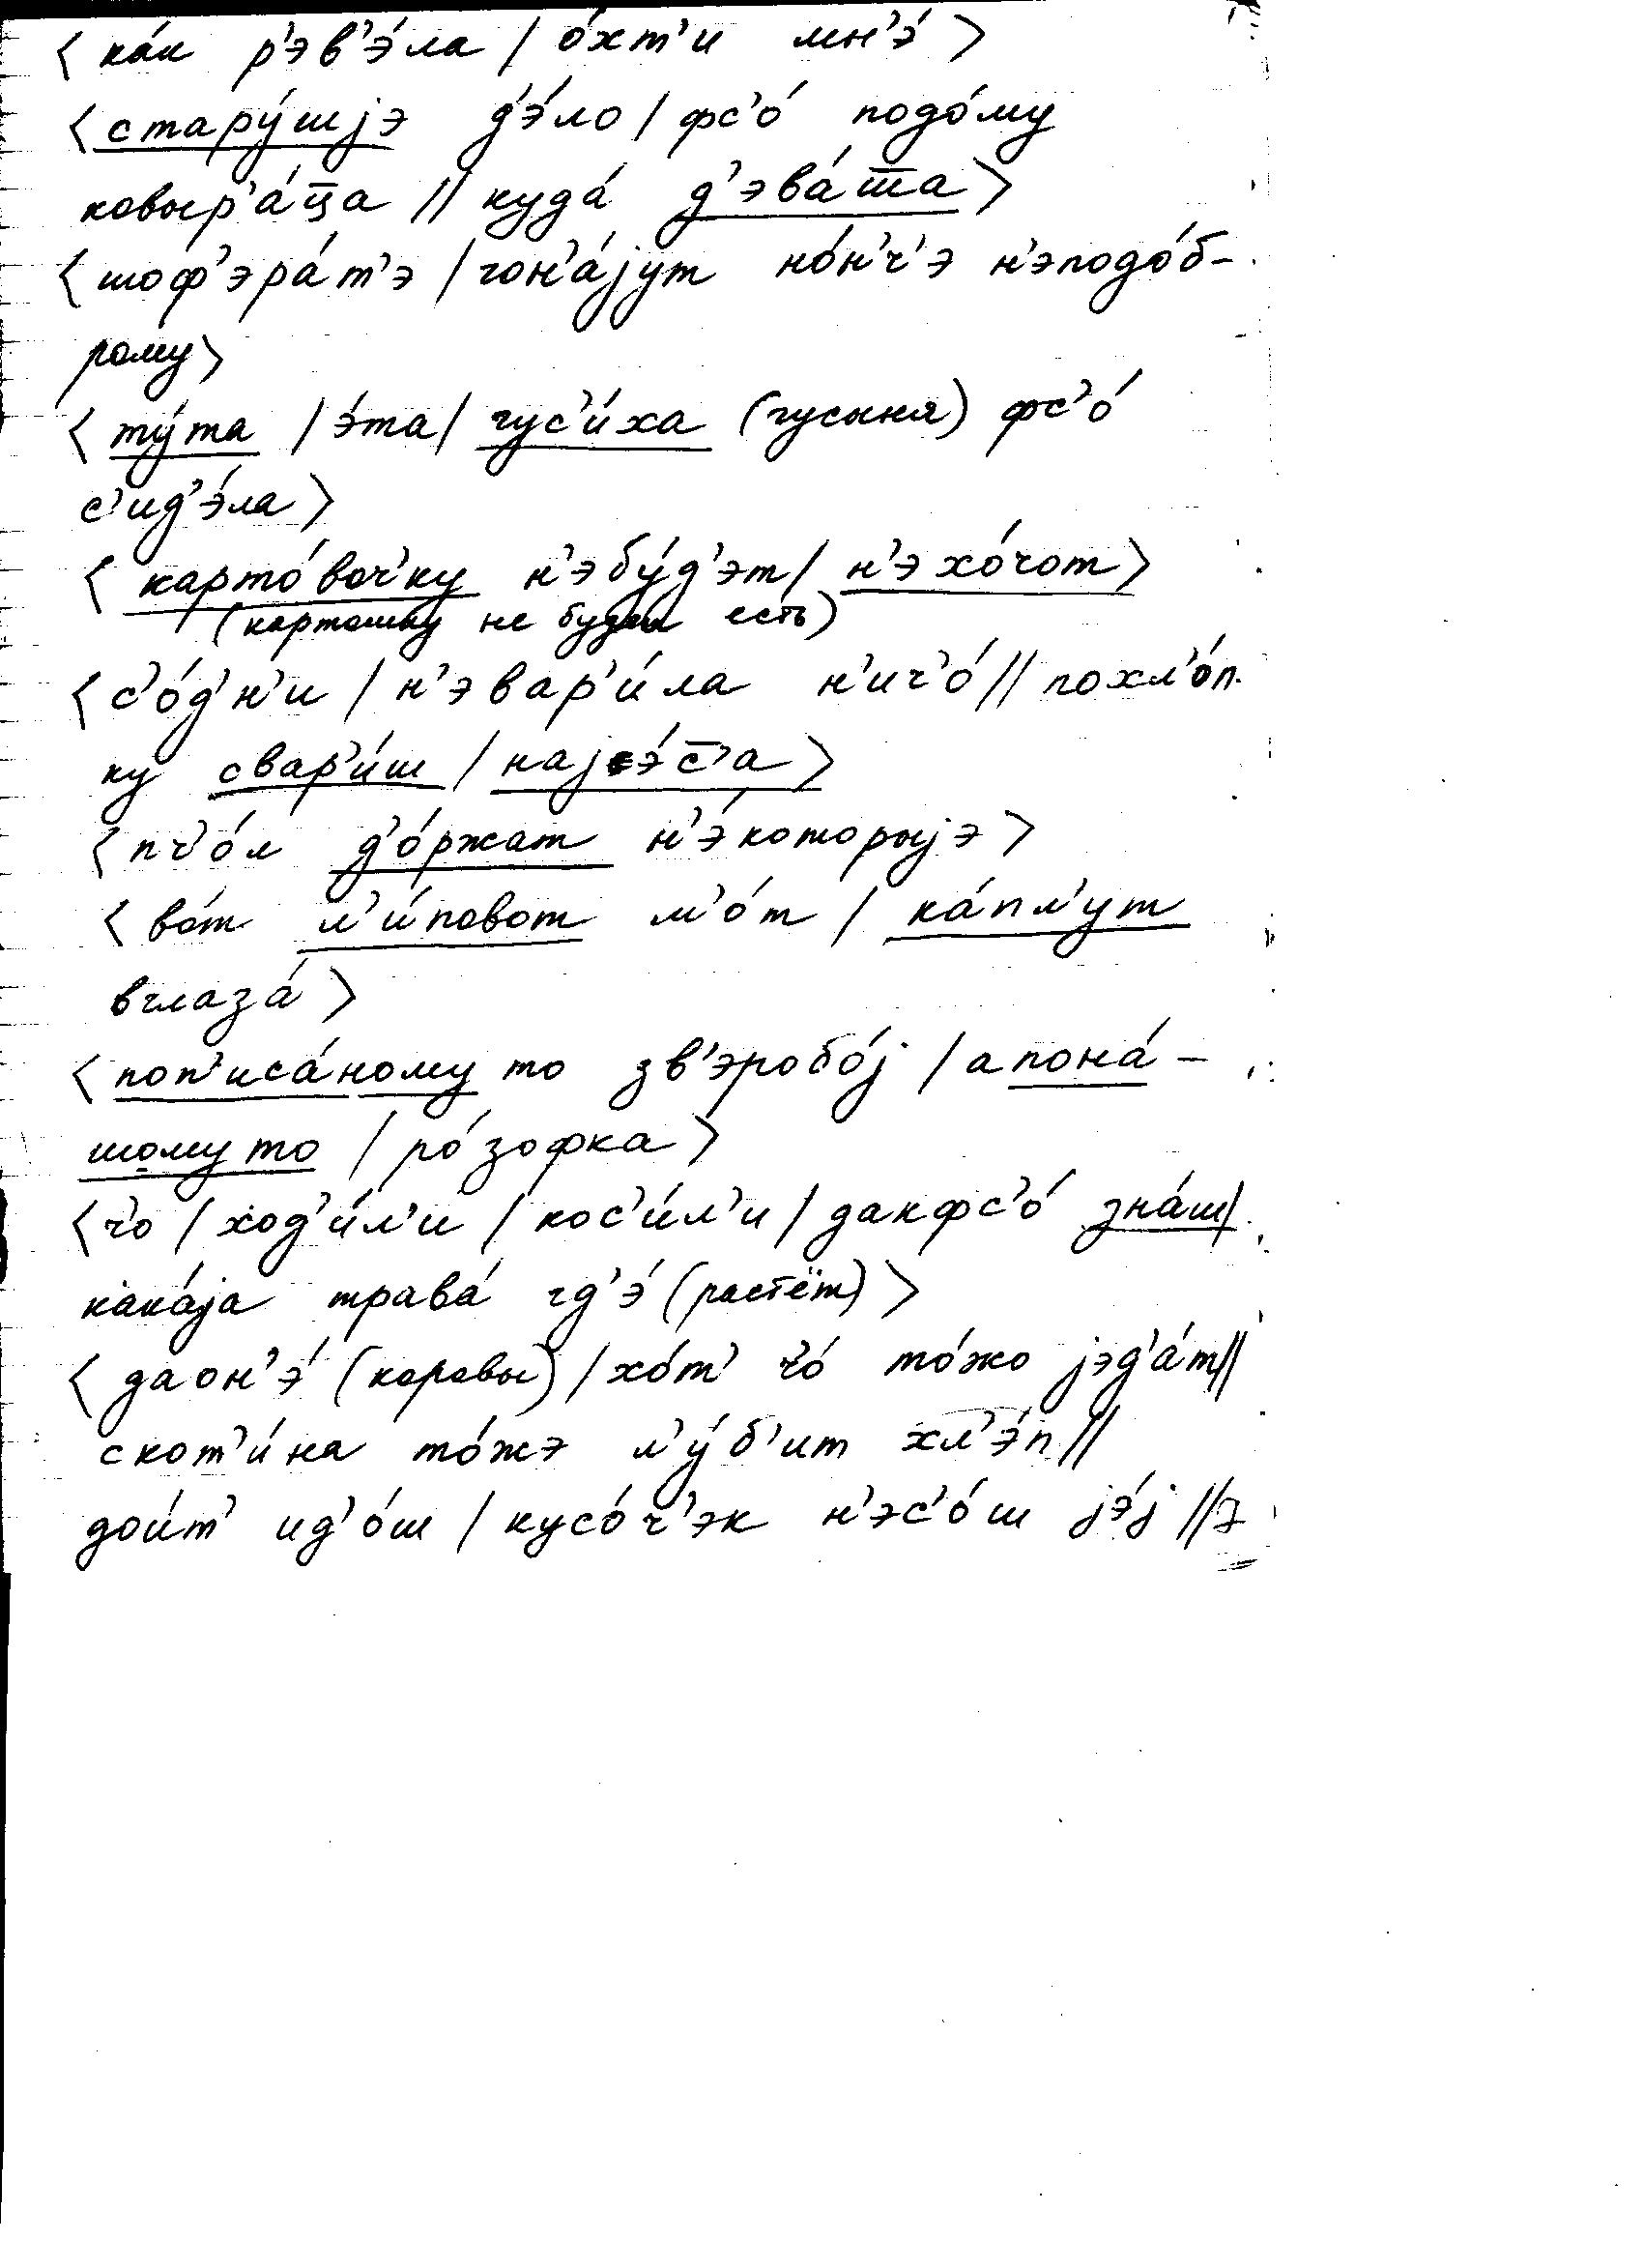 ⟨ ка́к р'эв'э́ла / о́хт'и мн'э́ ⟩
⟨ стару́шjэ д'э́ло / фс'о́ подо́му
ковыр'а́ц̅а // куда́ д'эва́т̅а ⟩
⟨ шоф'эра́т'э / гон'а́jут но́н'ч'э н'эподо́б-
рому ⟩
⟨ ту́та / э́та / гус'и́ха (гусыня) фс'о́
с'ид'э́ла ⟩
⟨ карто́воч'ку н'эбу́д'эт / н'эхо́чот ⟩
(картошку не будет есть)
⟨ с'о́д'н'и / н'эвар'и́ла н'ич'о́ // похл'о́п-
ку свар'и́ш / наjэ́с̅'а ⟩
⟨ пч'о́л д'о́ржат н'э́которыjэ ⟩
⟨ во́т л'и́повот м'о́т / ка́пл'ут
вглаза́ ⟩
⟨ поп'иса́ному то зв'эробо́j / а пона́-
шому то / ро́зофка ⟩
⟨ ч'о / ход'и́л'и / кос'и́л'и / дакфс'о́ зна́ш /
кака́jа трава́ гд'э́ (растёт) ⟩
⟨ даон'э́ (коровы) / хо́т' ч'о́ то́жо jэд'а́т //
скот'и́на то́жэ л'у́б'ит хл'э́п //
дои́т' ид'о́ш / кусо́ч'эк н'эс'о́ш jэ́j // ⟩